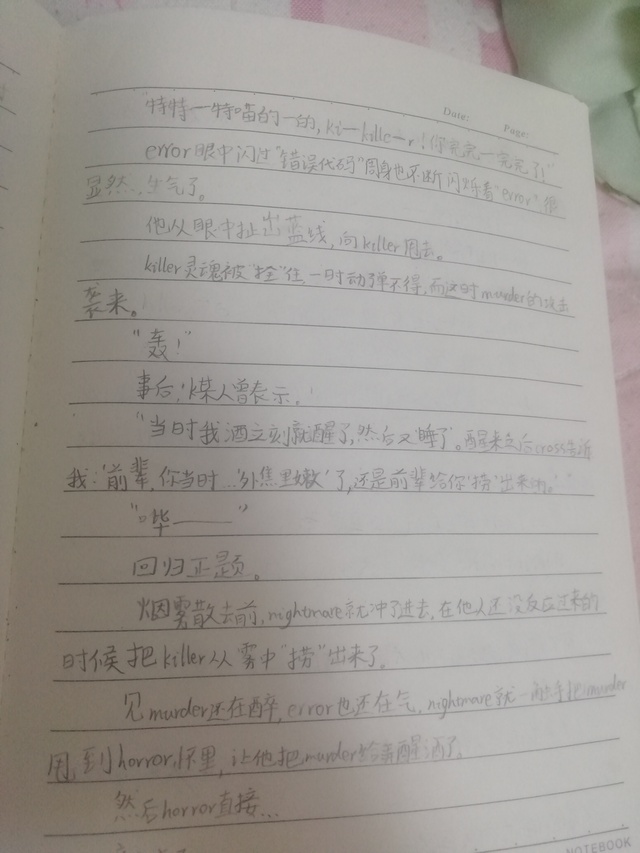 Date: Page:
"特特—特喵的—的, ki—kille—r！你完完—完完了！"
error眼中闪过"错误代码"周身也不断闪烁着"error"很
显然, 生气了。
他从眼中扯出蓝线, 向killer甩去。
killer灵魂被"拴"住一时动弹不得, 而这时murder的攻击
袭来。
"轰！"
事后, 煤人曾表示,
"当时我酒立刻就醒了, 然后又'睡了'。醒来之后cross告诉
我:'前辈, 你当时…'外焦里嫩'了, 还是前辈给你'捞'出来的。'"
"哔——"
回归正题。
烟雾散去前, nightmare就冲了进去, 在他人还没反应过来的
时候把killer从雾中"捞"出来了。
见murder还在醉, error也还在气, nightmare就一触手把murder
甩到horror怀里, 让他把murder给弄醒酒了。
然后horror直接…
NOTEBOOK